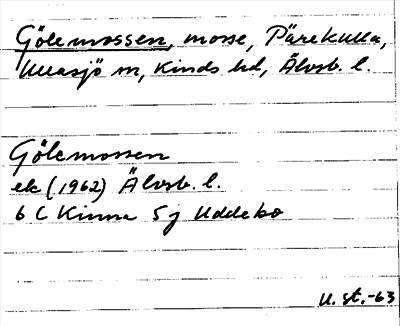 Gölemossen, mosse, Pärekulla,
Ullasjö sn, Kinds hd, Älvsb. l.
Gölemossen
ek (1962) Älvsb. l.
6 C Kinna 5 j Uddebo
U. st. -63